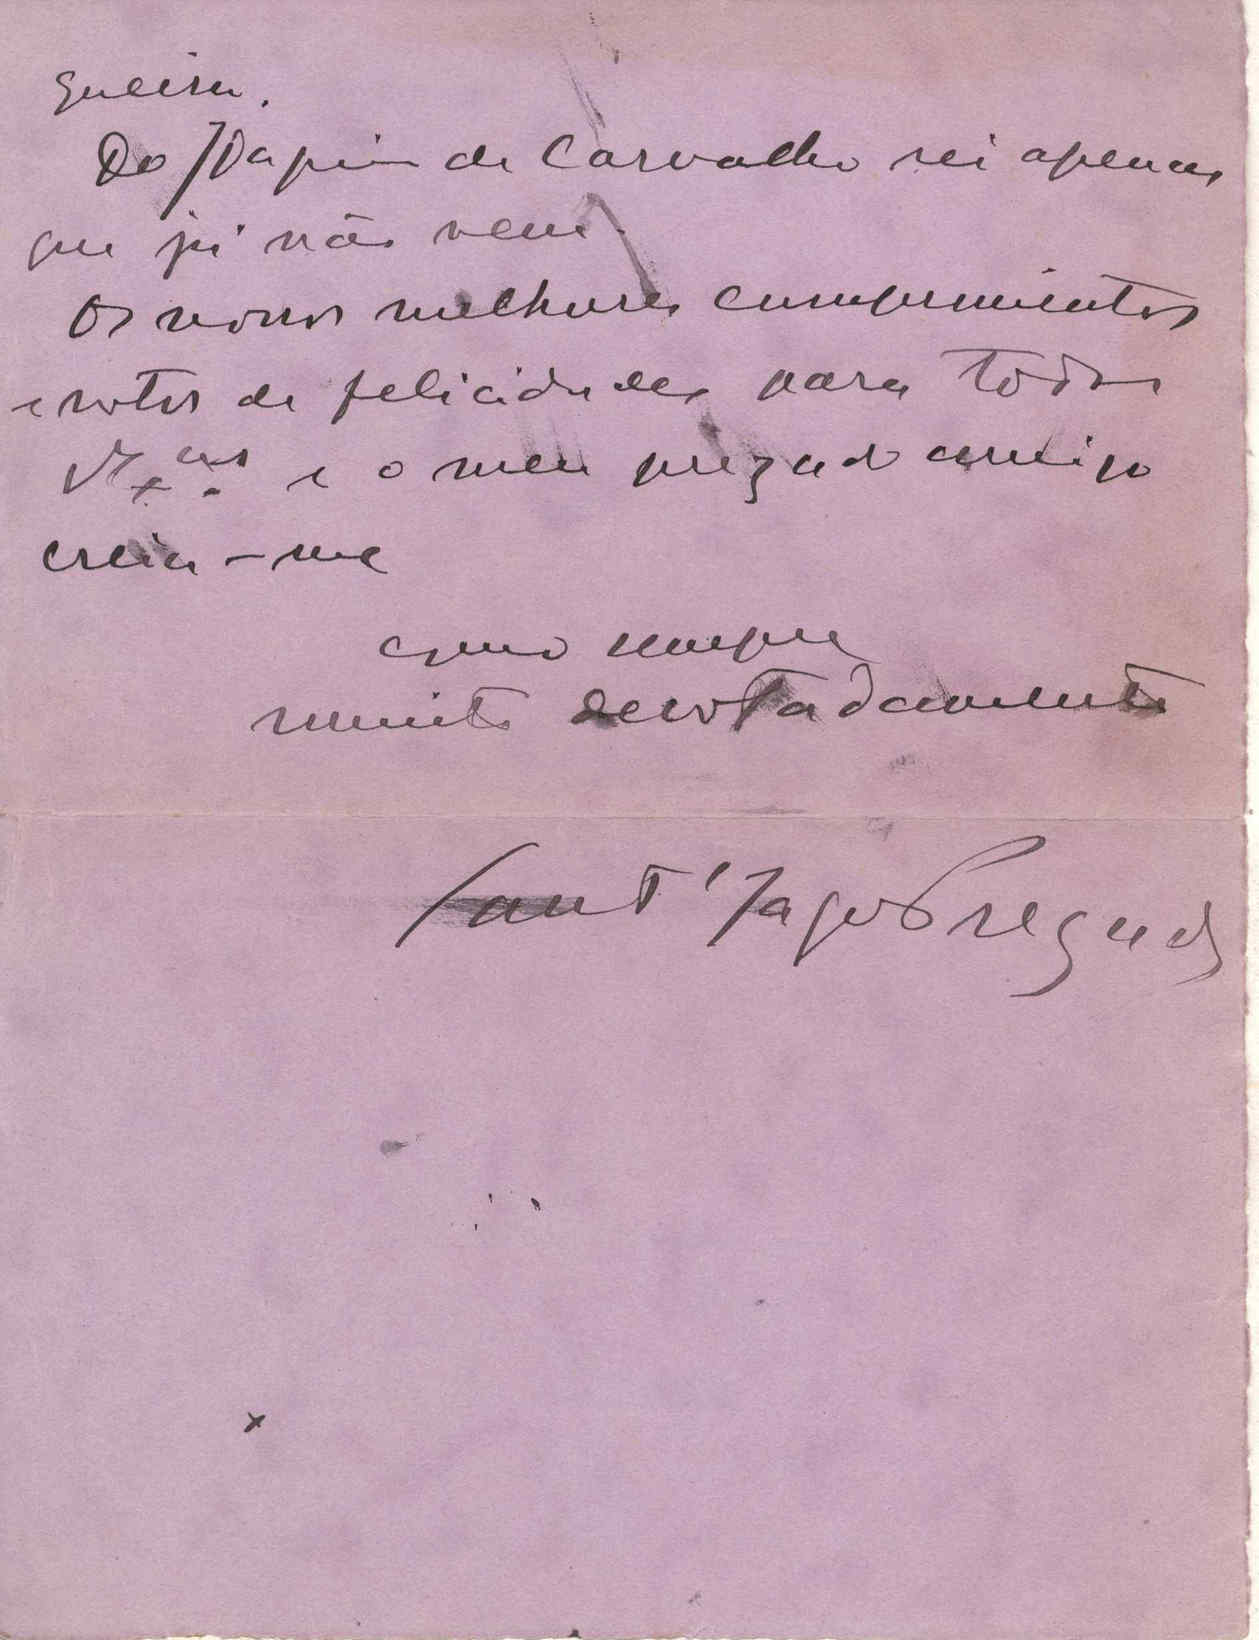 gueira.
Do Joaquim de Carvalho sei apenas
que já não vem.
Os nossos melhores cumprimentos
e votos de felicidades para todos
V. Ex.as e o meu prezado amigo
creia-me
como sempre
muito devotadamente
Sant'Iago Prezado